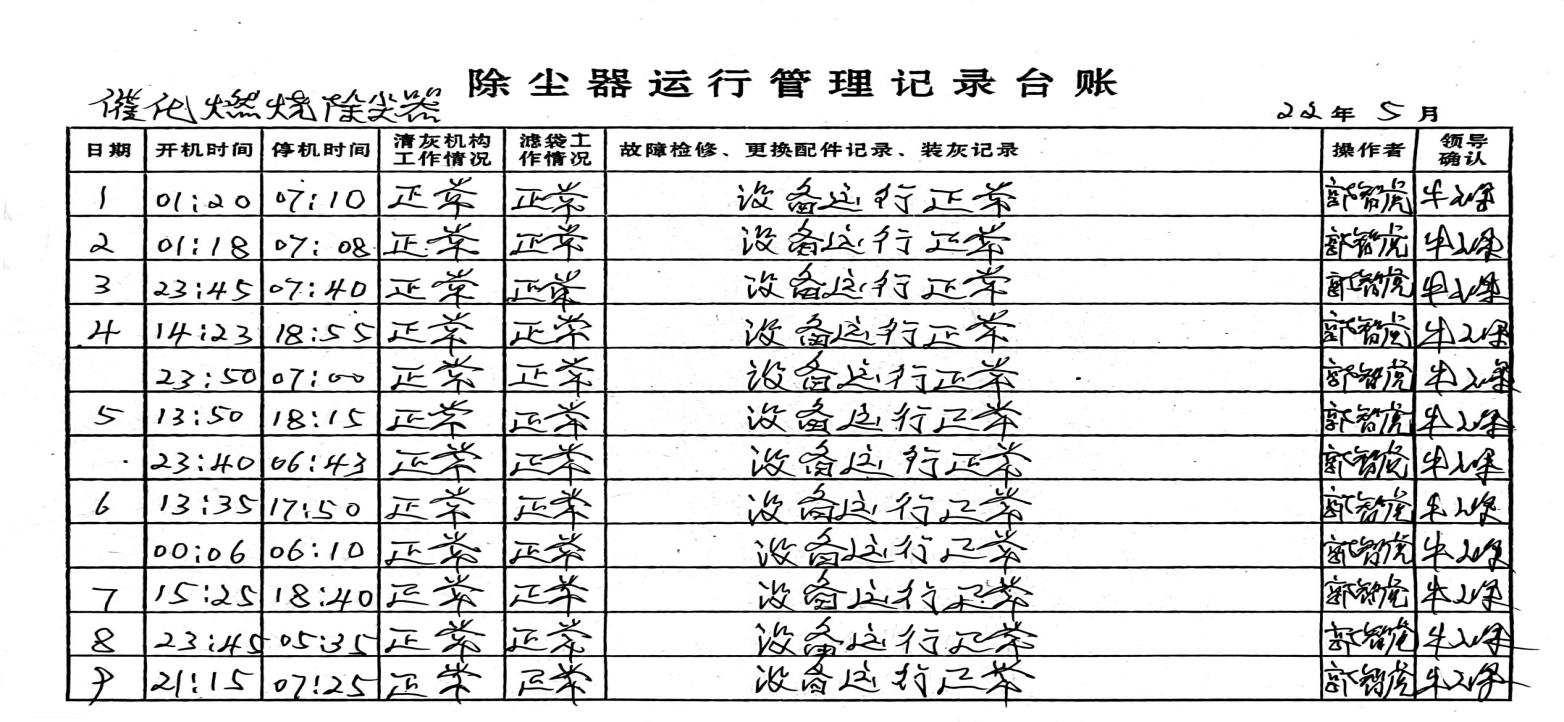 除尘器运行管理记录台账
催化燃烧除尘器 22年5月
日期 开机时间 停机时间 清灰机构工作情况 滤袋工作情况 故障检修、更换配件记录、装灰记录 操作者 领导确认
1 01:20 07:10 正常 正常 设备运行正常 郭智虎
2 01:18 07:08 正常 正常 设备运行正常 郭智虎
3 23:45 07:40 正常 正常 设备运行正常 郭智虎
4 14:23 18:55 正常 正常 设备运行正常 郭智虎
23:50 07:00 正常 正常 设备运行正常 郭智虎
5 13:50 18:15 正常 正常 设备运行正常 郭智虎
23:40 06:43 正常 正常 设备运行正常 郭智虎
6 13:35 17:50 正常 正常 设备运行正常 郭智虎
00:06 06:10 正常 正常 设备运行正常 郭智虎
7 15:25 18:40 正常 正常 设备运行正常 郭智虎
8 23:45 05:35 正常 正常 设备运行正常 郭智虎
9 21:15 07:25 正常 正常 设备运行正常 郭智虎